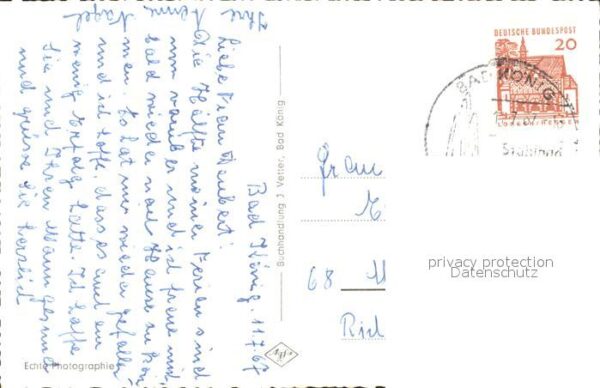 Bad König, 11.7.67
Liebe Frau
Die Hälfte meiner Ferien sind
nun vorüber und ich freue mich
bald wieder nach Hause zu kom
men. Es hat mir wieder gefallen
und ich hoffe, dass es auch ein
wenig Erfolg hatte. Ich hoffe
Sie und Ihren Mann gesund
und grüsse Sie herzlich
Ihre
Nagel
Buchhandlung J. Vetter, Bad König
Echte Photographie
DEUTSCHE BUNDESPOST
20
BAD KÖNIG
Frau
68 M
privacy protection
Datenschutz